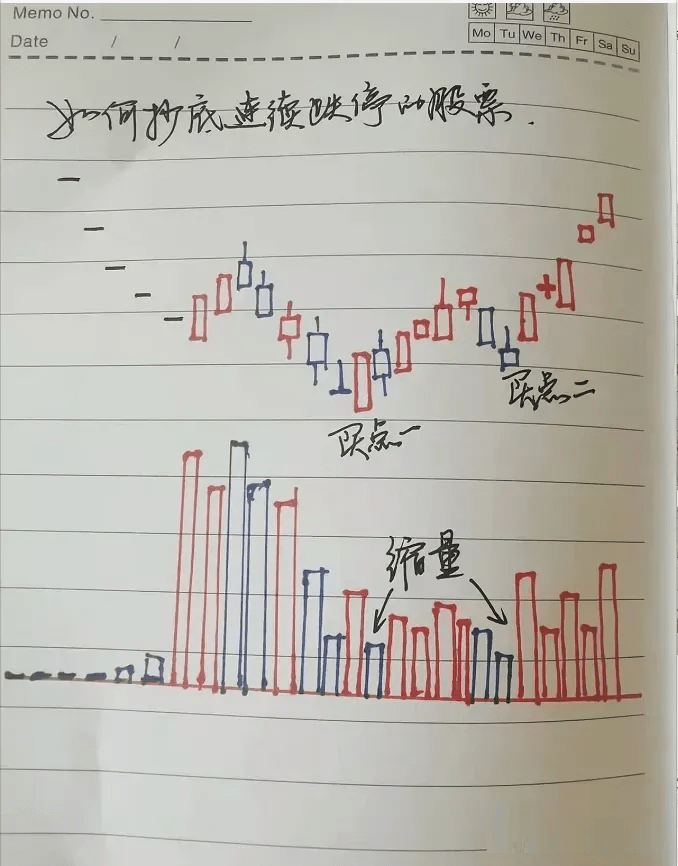 Memo No.
Mo Tu We Th Fr Sa Su
Date / /
如何抄底连续跌停的股票.
买点二
买点一
缩量